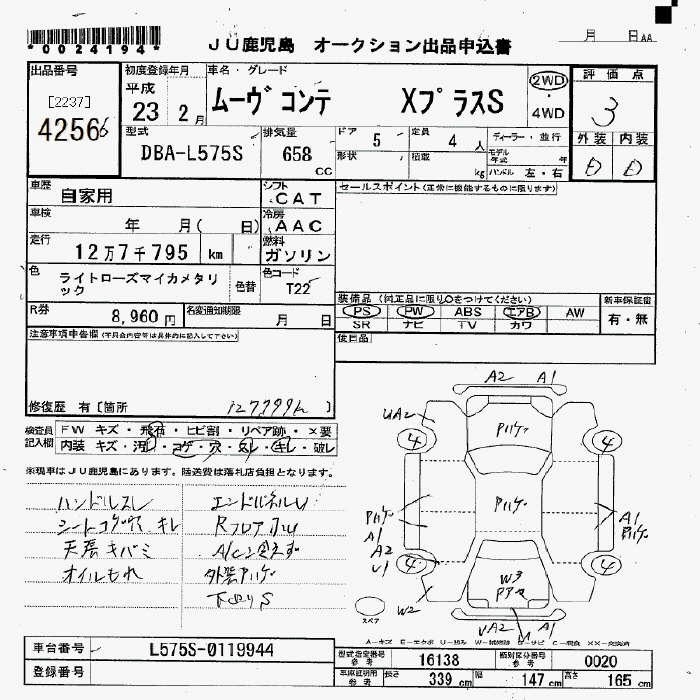 *0024194*
JU鹿児島 オークション出品申込書
月 日 AA
出品番号
[2237]
42566
初度登録年月
平成
23 2月
車名・グレード
ムーヴコンテ XプラスS
2WD
・
4WD
評価点
3
外装 内装
D D
型式
DBA-L575S
排気量
658
CC
ドア 5
形状
定員 4人
積載 kg
ディーラー・並行
モデル年式 年
ハンドル 左・右
車歴
自家用
シフト
CAT
セールスポイント(正常に機能するものに限ります)
車検
年 月( 日)
冷房
AAC
走行
12万7千795 km
燃料
ガソリン
色
ライトローズマイカメタリック
色替
色コード
T22
R券
8,960円
名変通知期限
月 日
装備品(純正品に限り○をつけてください)
PS PW ABS エアB AW
SR ナビ TV カワ
新車保証書
有・無
後日品
注意事項申告欄(不具合内容等は具体的に記入して下さい)
修復歴 有〔箇所 〕
検査員記入欄
FW キズ・飛石・ヒビ割・リペア跡・×要
内装 キズ・汚れ・コゲ・穴・スレ・キレ・破レ
※現車はJU鹿児島にあります。陸送費は落札店負担となります。
ハンドルスレ
シートコゲ穴 キレ
天張キバミ
オイルもれ
エンドパネルU
外装Pハゲ
下回りS
A2 A1
UA2
Pハゲ
4 4
Pハゲ
Pハゲ
A1
A2
U1
A1
Pハゲ
4 4
W3
W2
UA2 A1
スペア
A-キズ E-エクボ U-凹み W-補修跡 S-サビ C-腐食 XX-交換済
車台番号
L575S-0119944
登録番号
型式指定番号
参考
16138
類別区分番号
参考
0020
車庫証明用
参考
長さ
339 cm
幅
147 cm
高さ
165 cm